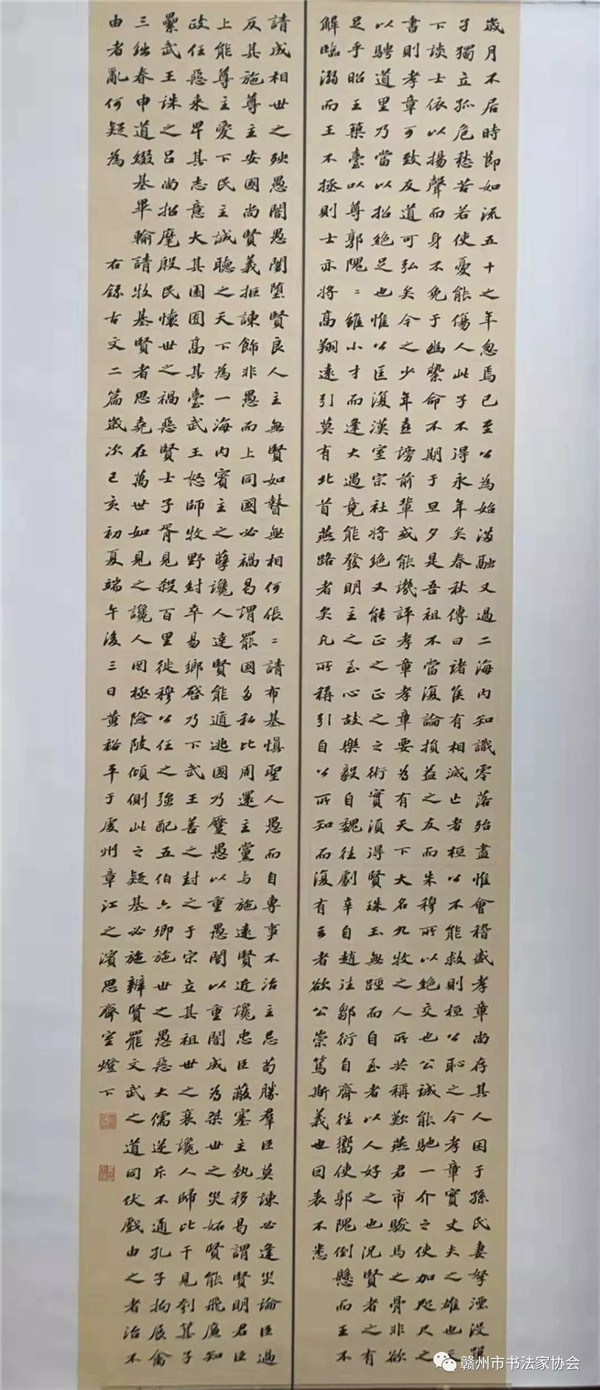 歲月不居時節如流五十之年忽焉已至公為始滿融又過二海内知識零落殆盡惟會稽盛孝章尚存其人困于孫氏妻孥湮没單
孑獨立孤危愁苦若使憂能傷人此子不得永年矣春秋傳曰諸侯有相滅亡者桓公不能救則桓公恥之今孝章實丈夫之雄也天
下談士依以揚聲而身不免于幽縶命不期于旦夕是吾祖不當復論損益之友而朱穆所以絶交也公誠能馳一介之使加咫尺之
書則孝章可致友道可弘矣今之少年喜謗前輩或能譏評孝章孝章要為有天下大名九牧之人所共稱歎燕君市駿馬之骨非欲
以騁道里乃當以招絶足也惟公匡復漢室宗社將絶又能正之正之之術實須得賢珠玉無踁而自至者以人好之也況賢者之有
足乎昭王築臺以尊郭隗〻雖小才而逢大遇竟能發明主之至心故樂毅自魏往劇辛自趙往鄒衍自齊往嚮使郭隗倒懸而王不
解臨溺而王不拯則士亦將高翔遠引莫有北首燕路者矣凡所稱引自公所知而復有云者欲公崇篤斯義也因表不悉
請成相世之殃愚闇愚闇墮賢良人主無賢如瞽無相何倀〻請布基慎聖人愚而自專事不治主忌苟勝羣臣莫諫必逢災論臣過
反其施尊主安國尚賢義拒諫飾非愚而上同國必禍曷謂罷國多私比周還主黨與施遠賢近讒忠臣蔽塞主執移曷謂賢明君臣
上能尊主愛下民主誠聽之天下為一海内賓主之孽讒人達賢能遁逃國乃蹷愚以重愚闇以重闇成為桀世之災妬賢能飛廉知
政任惡來卑其志意大其園囿高其臺武王怒師牧野紂卒易鄉啓乃下武王善之封之于宋立其祖世之衰讒人歸比干見刳箕子
纍武王誅之吕尚招麾殷民懷世之禍惡賢士子胥見殺百里徙穆公任之強配五伯六卿施世之愚惡大儒逆斥不通孔子拘展禽
三絀春申道綴基畢輸請牧基賢者思堯在萬世如見之讒人罔極險陂傾側此之疑基必施辨賢罷文武之道同伏戲由之者治不
由者亂何疑為 右錄古文二篇歲次己亥初夏端午後三日黄裕平于虔州章江之濱思齊室燈下
赣州市书法家协会